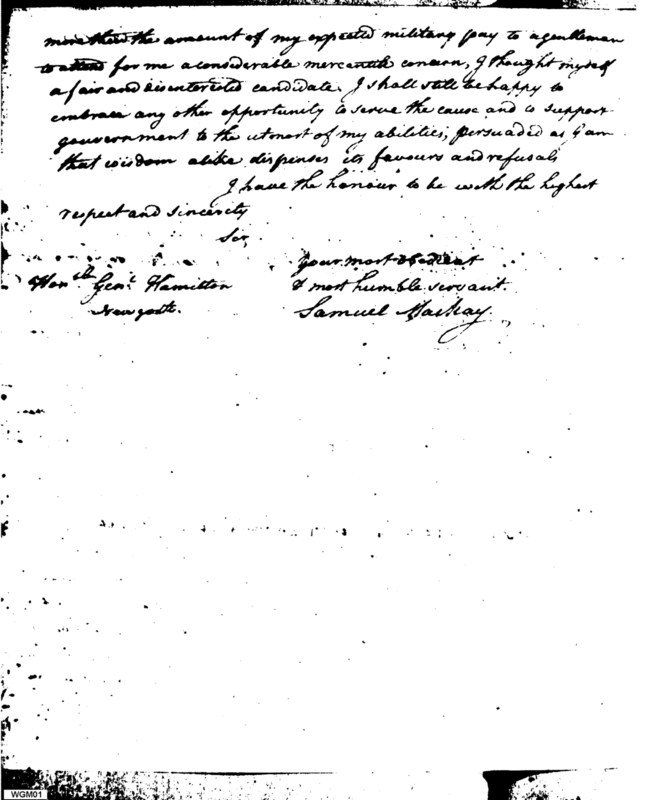 more than the amount of my expected military pay to a gentleman
to attend for me a considerable mercantile concern, I thought myself
a fair and disenterested candidate. I shall still be happy to
embrace any other opportunity to serve the cause and to support
gouvernment to the utmost of my abilities, persuaded as I am
that wisdom alike dispenses its favours and refusals
I have the honour to be with the highest
respect and sincerity
Sir
your most obedient
Honble Genl. Hamilton & most humble servant.
New york. Samuel Mackay
WGM01